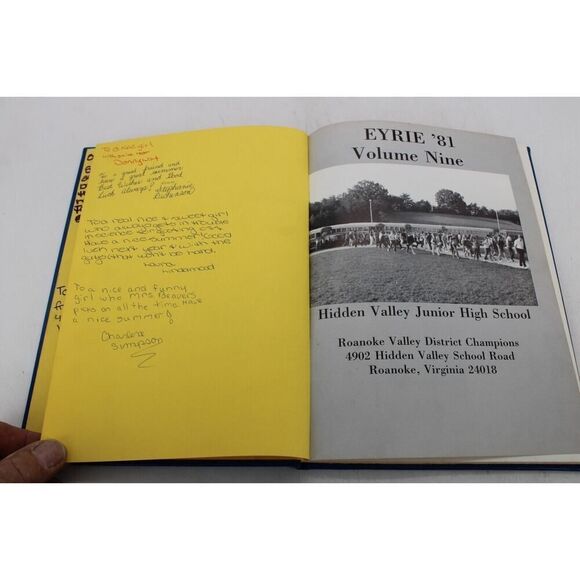 To a nice girl
To a good friend and
have a great summer
Best Wishes and Good
Luck Always!
Stephanie
Dickerson
To a real nice & sweet girl
who always gets in trouble
in science
Have a nice summer & Good
luck next year & with the
guys (that won't be hard)
Laura
To a nice and funny
girl who Mrs Beavers
picks on all the time. Have
a nice summer!
Charlene
Simpson
EYRIE '81
Volume Nine
Hidden Valley Junior High School
Roanoke Valley District Champions
4902 Hidden Valley School Road
Roanoke, Virginia 24018